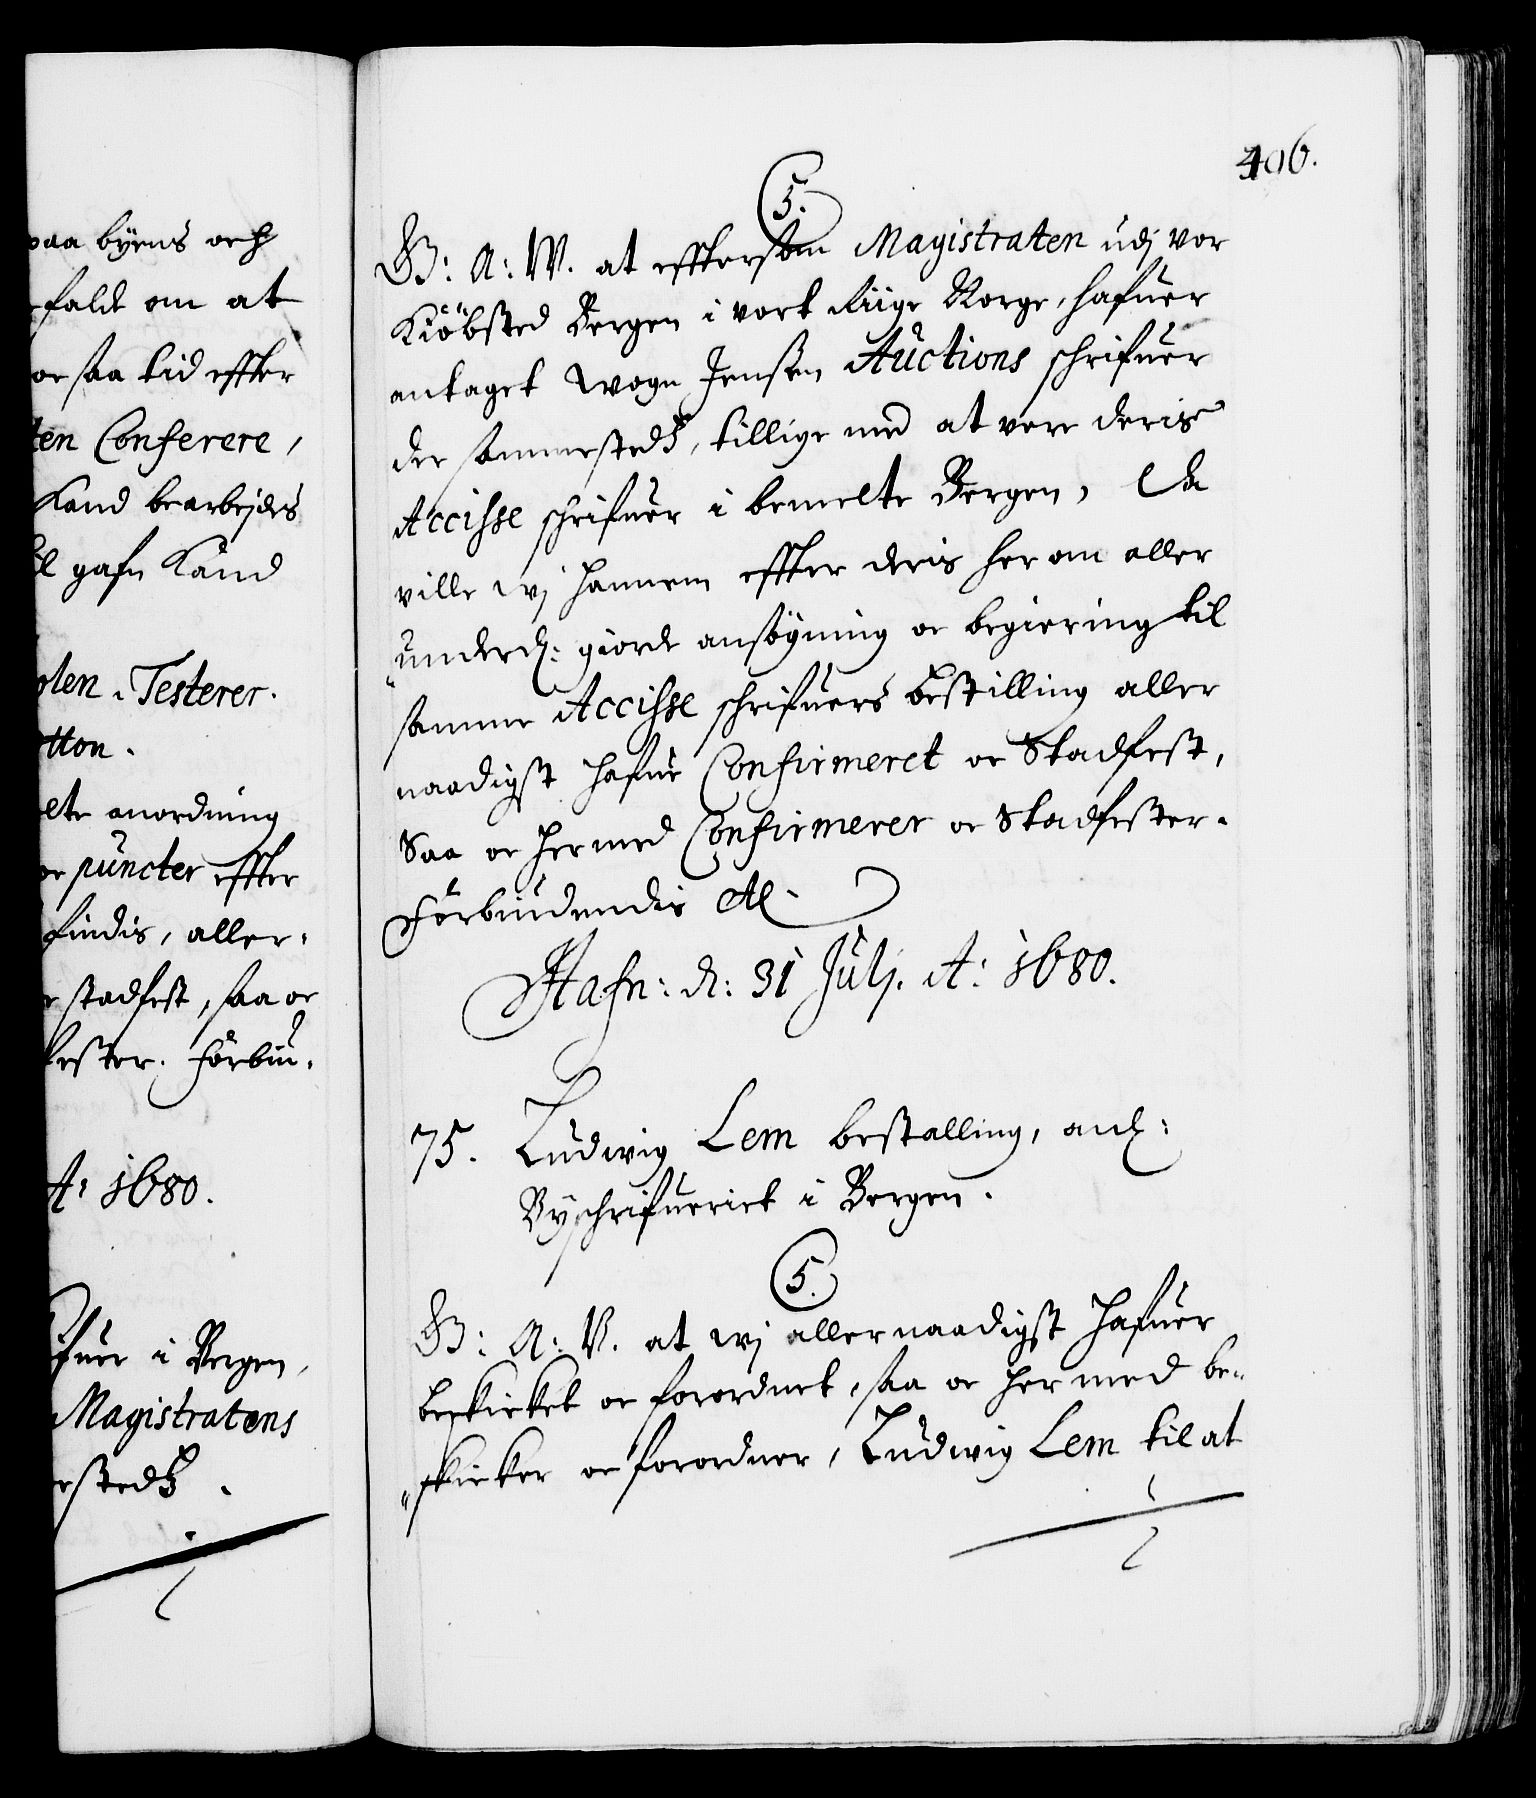 paa byens och
falde om at
oc saa tid effter
ten Conferere,
Kand bearbejdes
til gafn Kand
olen. Testerer.
tton.
elte anordning
oc puncter effter
findis, aller-
stadfest, saa oc
fester. Forbiu-
A: 1680.
fuer i Bergen,
Magistratens
erstedz.
406.
5.
G: A: W. at efftersom Magistraten udj vor
Kiöbsted Bergen i vort Riige Norge, hafuer
antaget Wogn Jensen Auctions schrifuer
der sammestedz, tillige med at vere deris
Accisse schrifuer i bemelte Bergen, Da
ville wj hannem effter deris her om aller
underd: giorde ansögning oc begiering til
samme Accisse schrifuers bestilling aller
naadigst hafue Confirmeret oc Stadfest,
Saa oc hermed Confirmerer oc Stadfester.
Forbiudendis Al.
Hafn: d: 31 Julj. A: 1680.
75. Ludwig Lem bestalling, anl:
Byschrifueriet i Bergen.
5.
G: A: V. at wj allernaadigst hafuer
beskicket oc forordnet, saa oc her med be-
skicker oc forordner, Ludwig Lem til at